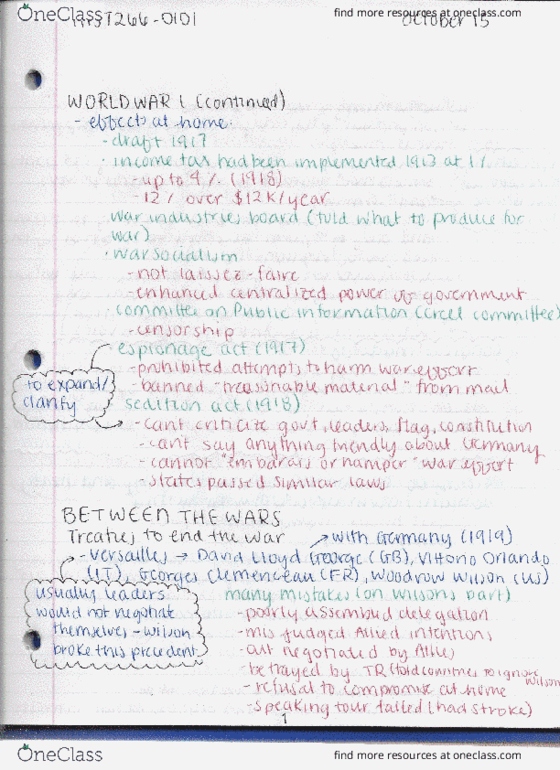 OneClass find more resources at oneclass.com
HIST266-0101 October 15
WORLD WAR I (continued)
- effects at home:
- draft 1917
- income tax had been implemented 1913 at 1%
- up to 4% (1918)
- 12% over $12K/year
war industries board (told what to produce for
war)
· war socialism
- not laissez-faire
- enhanced centralized power of government
committee on Public information (creel committee)
- censorship
espionage act (1917)
- prohibited attempts to harm war effort
- banned "treasonable material" from mail
to expand/
clarify
sedition act (1918)
- can't criticize govt, leaders, flag, constitution
- can't say anything friendly about Germany
- cannot "embarass or hamper" war effort
- states passed similar laws
BETWEEN THE WARS
Treaties to end the war
with Germany (1919)
- versailles → David Lloyd George (GB), Vittorio Orlando
(IT), Georges Clemenceau (FR), Woodrow Wilson (US)
usually leaders
would not negotiate
themselves - wilson
broke this precedent
many mistakes (on wilsons part)
- poorly assembled delegation
- misjudged Allied intentions
- out negotiated by Allies
- betrayed by TR (told countries to ignore wilson
- refusal to compromise at home
- speaking tour failed (had stroke)
1
OneClass find more resources at oneclass.com